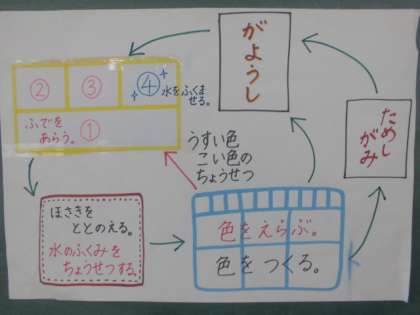 がようし
② ③ ④
水をふくま
せる。
ふでを
あらう。 ①
ためし
がみ
うすい色
こい色の
ちょうせつ
ほさきを
ととのえる。
水のふくみを
ちょうせつする。
色をえらぶ。
色をつくる。